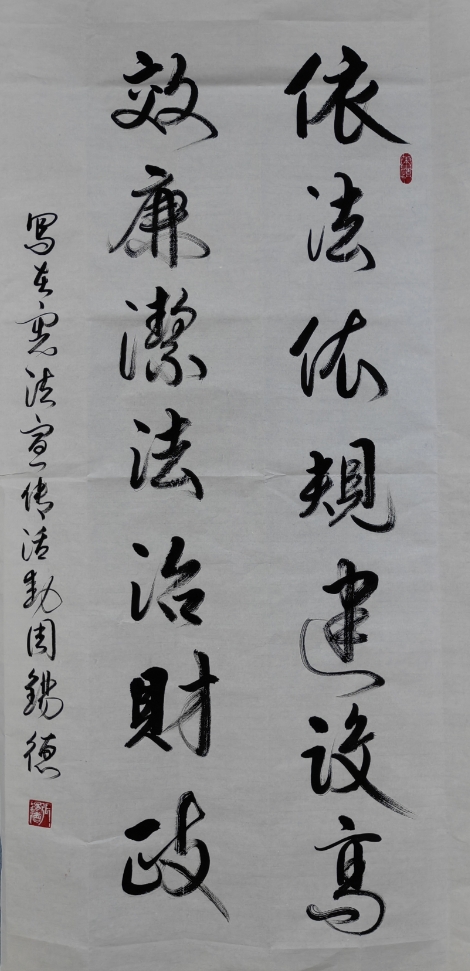 依法依规建设高
效廉潔法治財政
寫在憲法宣传活動周錫德